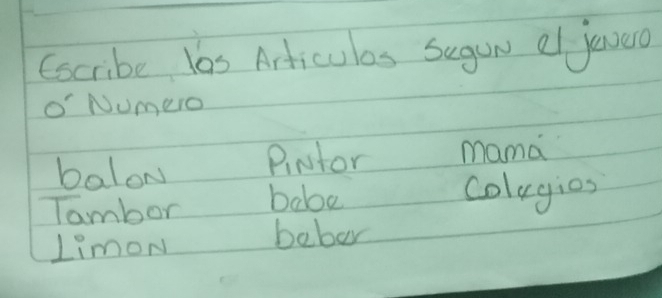 Escribe las Articulos Segun el jenero
o' Numero
balon Pintor mamá
Tambor bebe Colegios
Limon beber